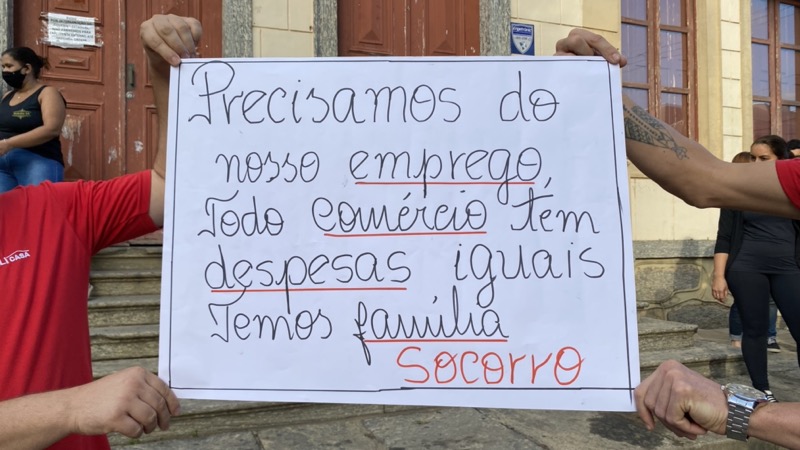 Precisamos do
nosso emprego,
Todo comércio têm
despesas iguais
Temos família
SOCORRO